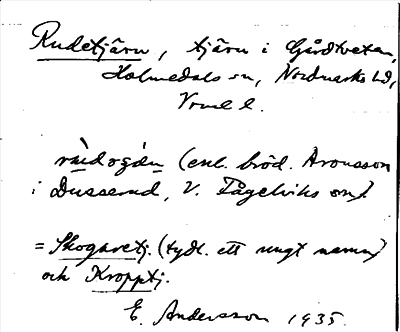 Rudetjärn, tjärn i Gårdtveten,
Holmedals sn, Nordmarks hd,
Vrml l.
(enl. bröd. Aronsson
i Dusserud, V. Fågelviks sn).
= Skogaretj. (tydl. ett ungt namn)
och Kropptj.
E. Andersson 1935.